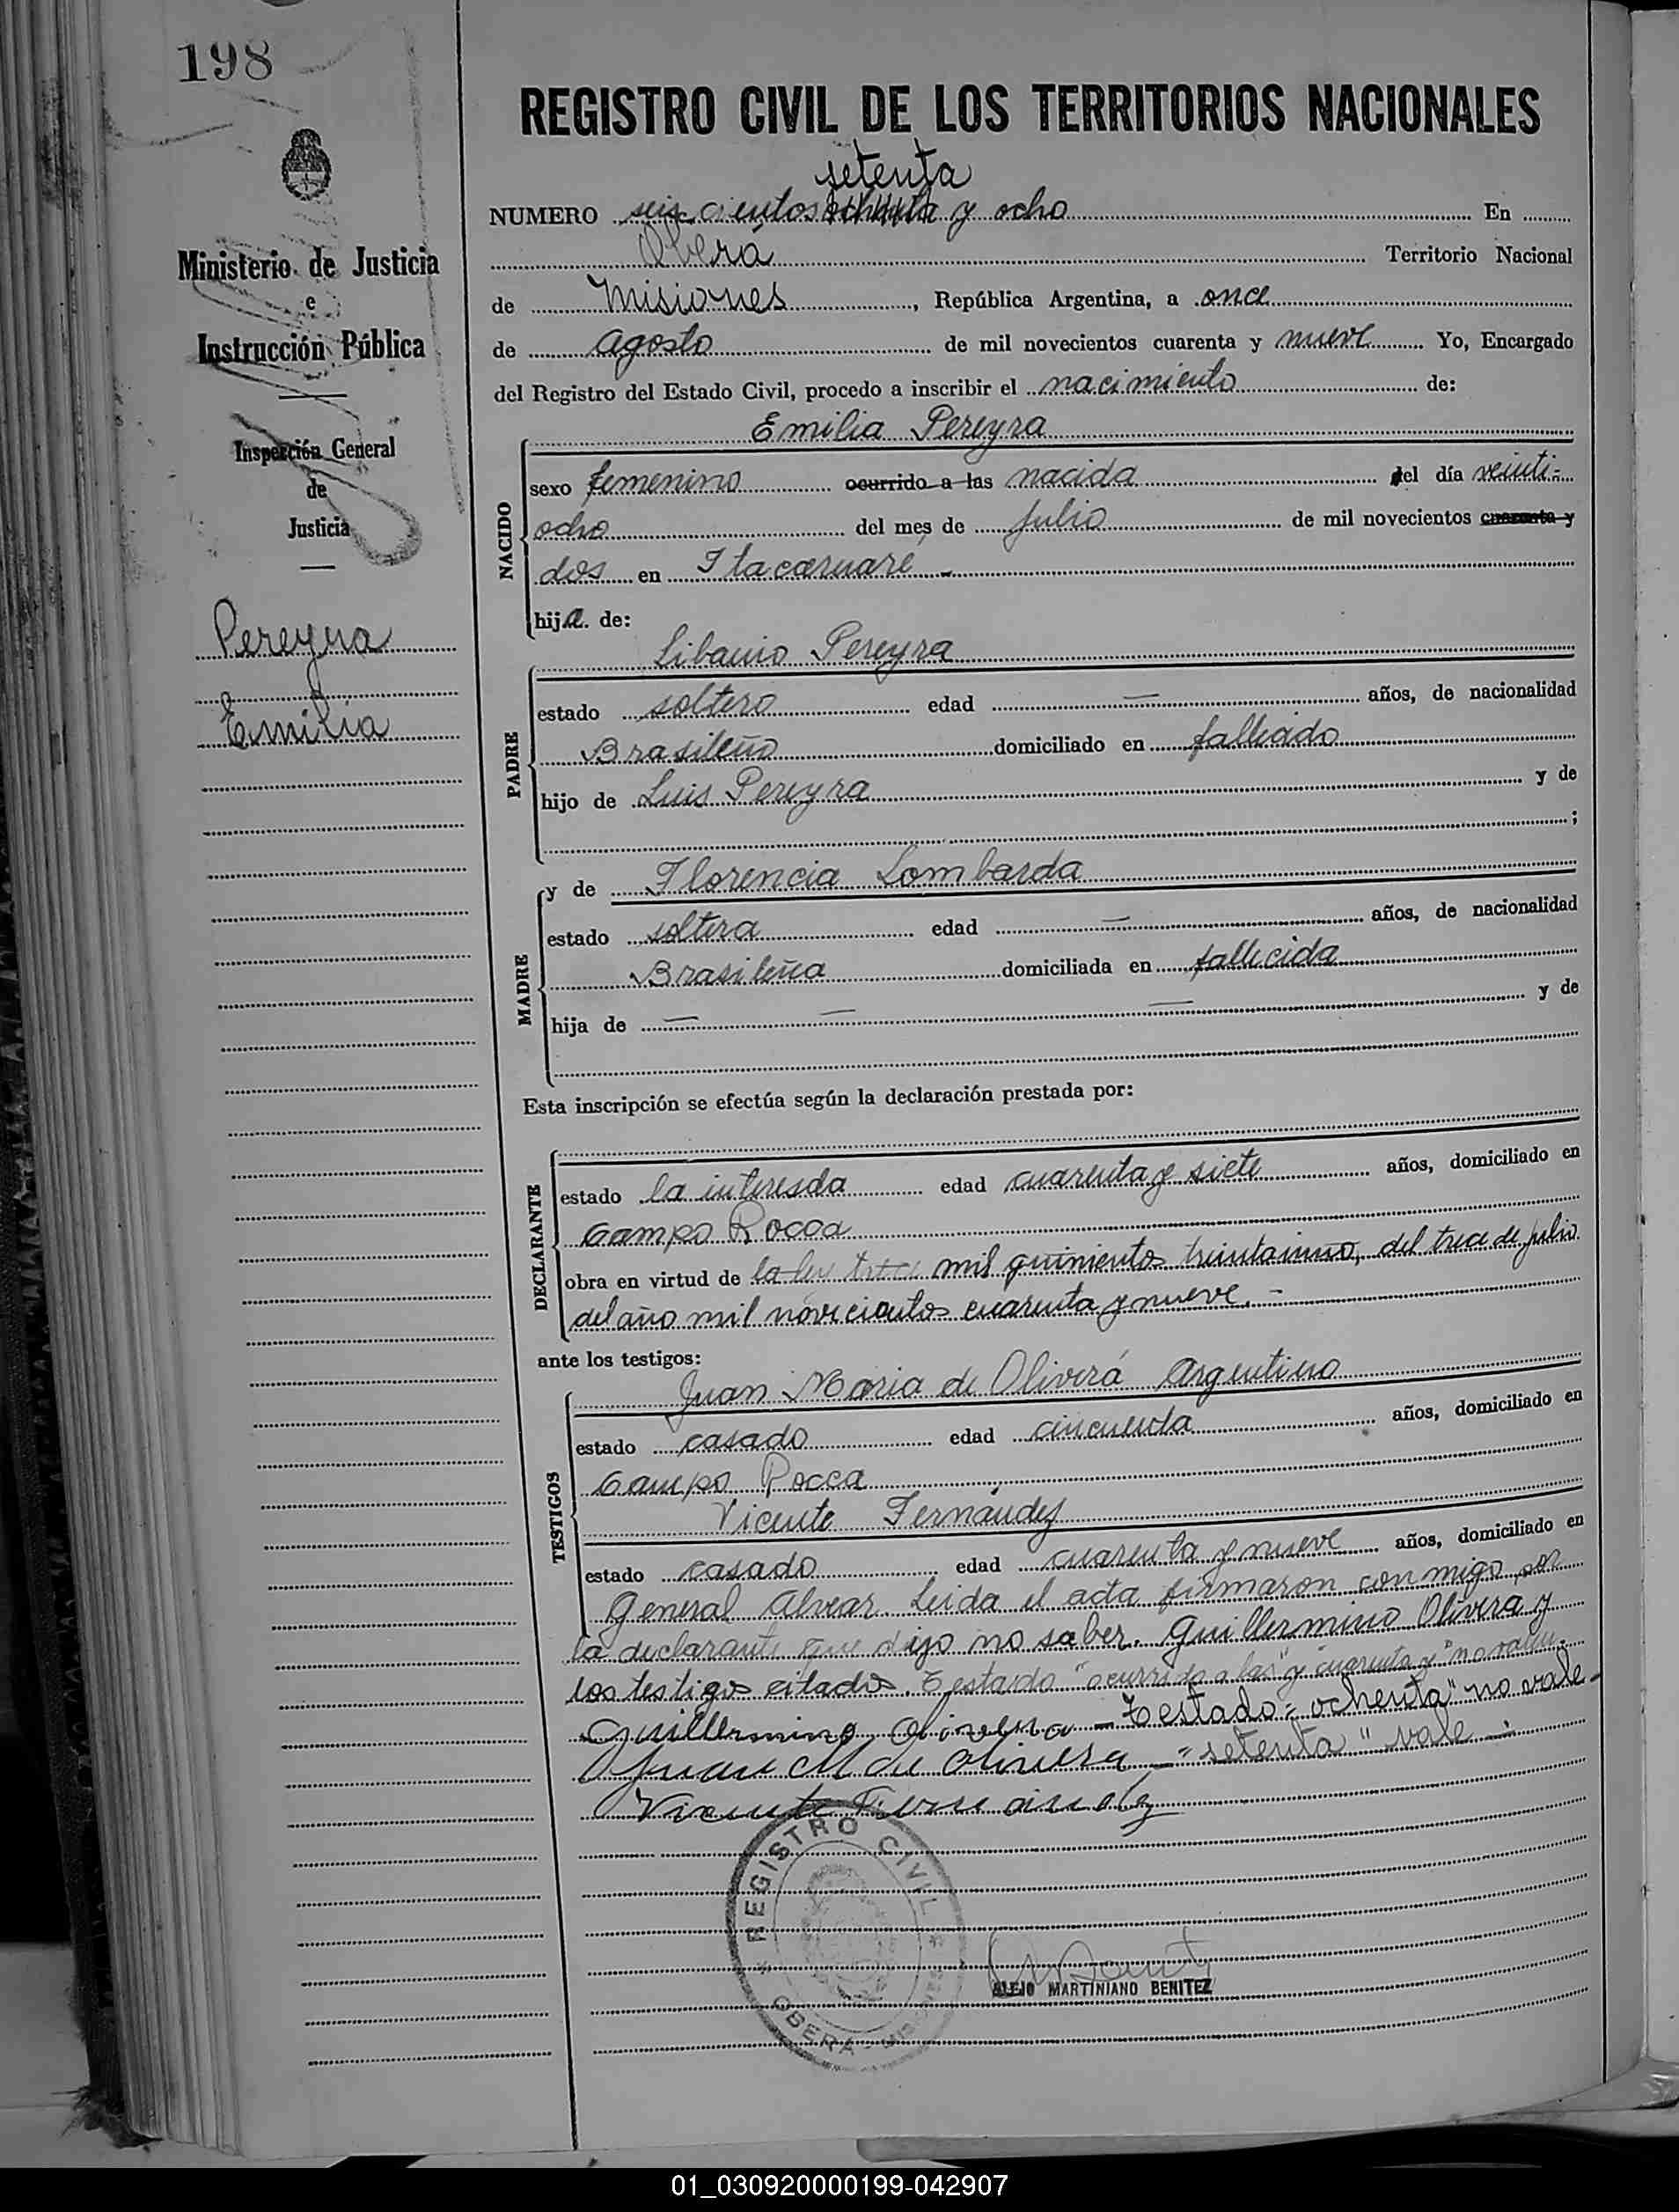 198
Ministerio de Justicia
e
Instrucción Pública
Inspección General
de
Justicia
Pereyra
Emilia
REGISTRO CIVIL DE LOS TERRITORIOS NACIONALES
setenta
NUMERO seiscientos ochenta y ocho En
Oberá Territorio Nacional
de Misiones, República Argentina, a once
de agosto de mil novecientos cuarenta y nueve Yo, Encargado
del Registro del Estado Civil, procedo a inscribir el nacimiento de:
Emilia Pereyra
NACIDO
sexo femenino ocurrido a las nacida del día veinti-
ocho del mes de julio de mil novecientos cuarenta y
dos en Itacaruaré -
hija de:
Libanio Pereyra
PADRE
estado soltero edad — años, de nacionalidad
Brasileño domiciliado en fallecido
hijo de Luis Pereyra y de
;
MADRE
y de Florencia Lombarda
estado soltera edad — años, de nacionalidad
Brasileña domiciliada en fallecida
hija de — — — y de
Esta inscripción se efectúa según la declaración prestada por:
DECLARANTE
estado la interesda edad cuarenta y siete años, domiciliado en
Campo Rocca
obra en virtud de la ley trece mil quinientos treintaiuno, del trece de julio
del año mil novecientos cuarenta y nueve. -
ante los testigos:
Juan Maria de Olivera Argentino
TESTIGOS
estado casado edad cincuenta años, domiciliado en
Campo Rocca
Vicente Fernández
estado casado edad cuarenta y nueve años, domiciliado en
General Alvear. Leida el acta firmaron conmigo, por
la declarante que dijo no saber. Guillermino Olivera y
los testigos citados. Testado "ocurrido a las" y "cuarenta y" no valen.
Guillermino Olivera - Testado: "ochenta" no vale -
Juan M de Olivera - "setenta" vale -
Vicente Fernández
REGISTRO CIVIL
OBERÁ - MISIONES
ALEJO MARTINIANO BENITEZ
01_030920000199-042907